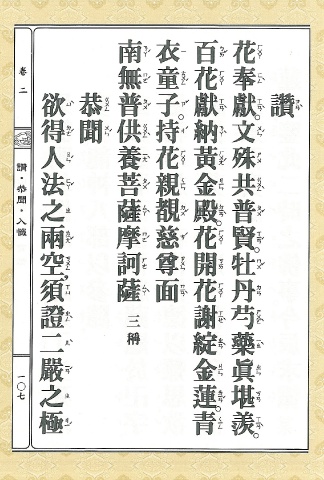 讚
花奉獻。文殊共普賢。牡丹芍藥眞堪羨。
百花獻納黃金殿。花開花謝綻金蓮。青
衣童子。持花親覩慈尊面
南無普供養菩薩摩訶薩 三稱
恭聞
欲得人法之兩空。須證二嚴之極
卷二
讚・恭聞・入懺
一〇七